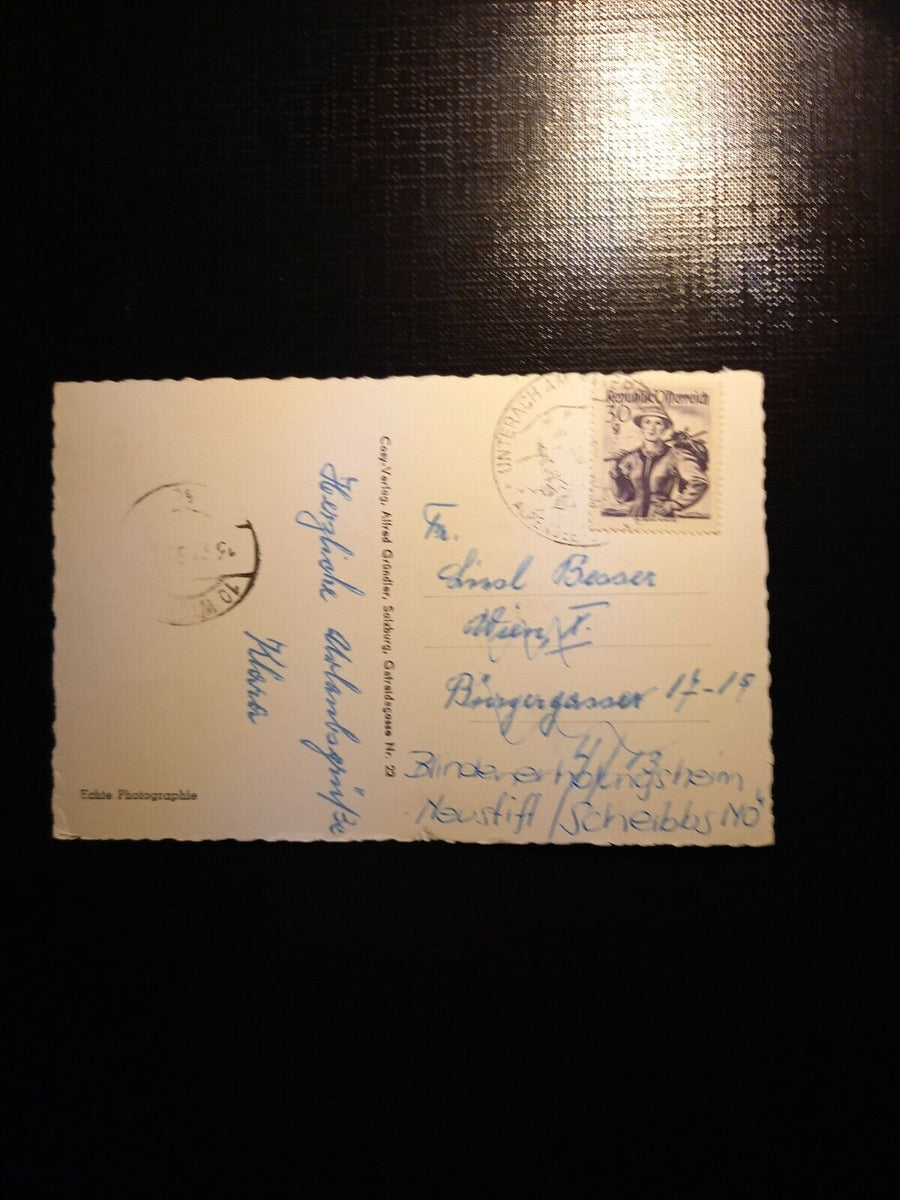 Herzliche Urlaubsgrüße
Klara
Cosy-Verlag, Alfred Gründler, Salzburg, Getreidegasse Nr. 22
Echte Photographie
UNTERACH AM
Republik Österreich
30
g
Fr.
Besser
Wien X.
Bürgergasse 17-19
4/13
Blindenerholungsheim
Neustift/Scheibbs NÖ
10